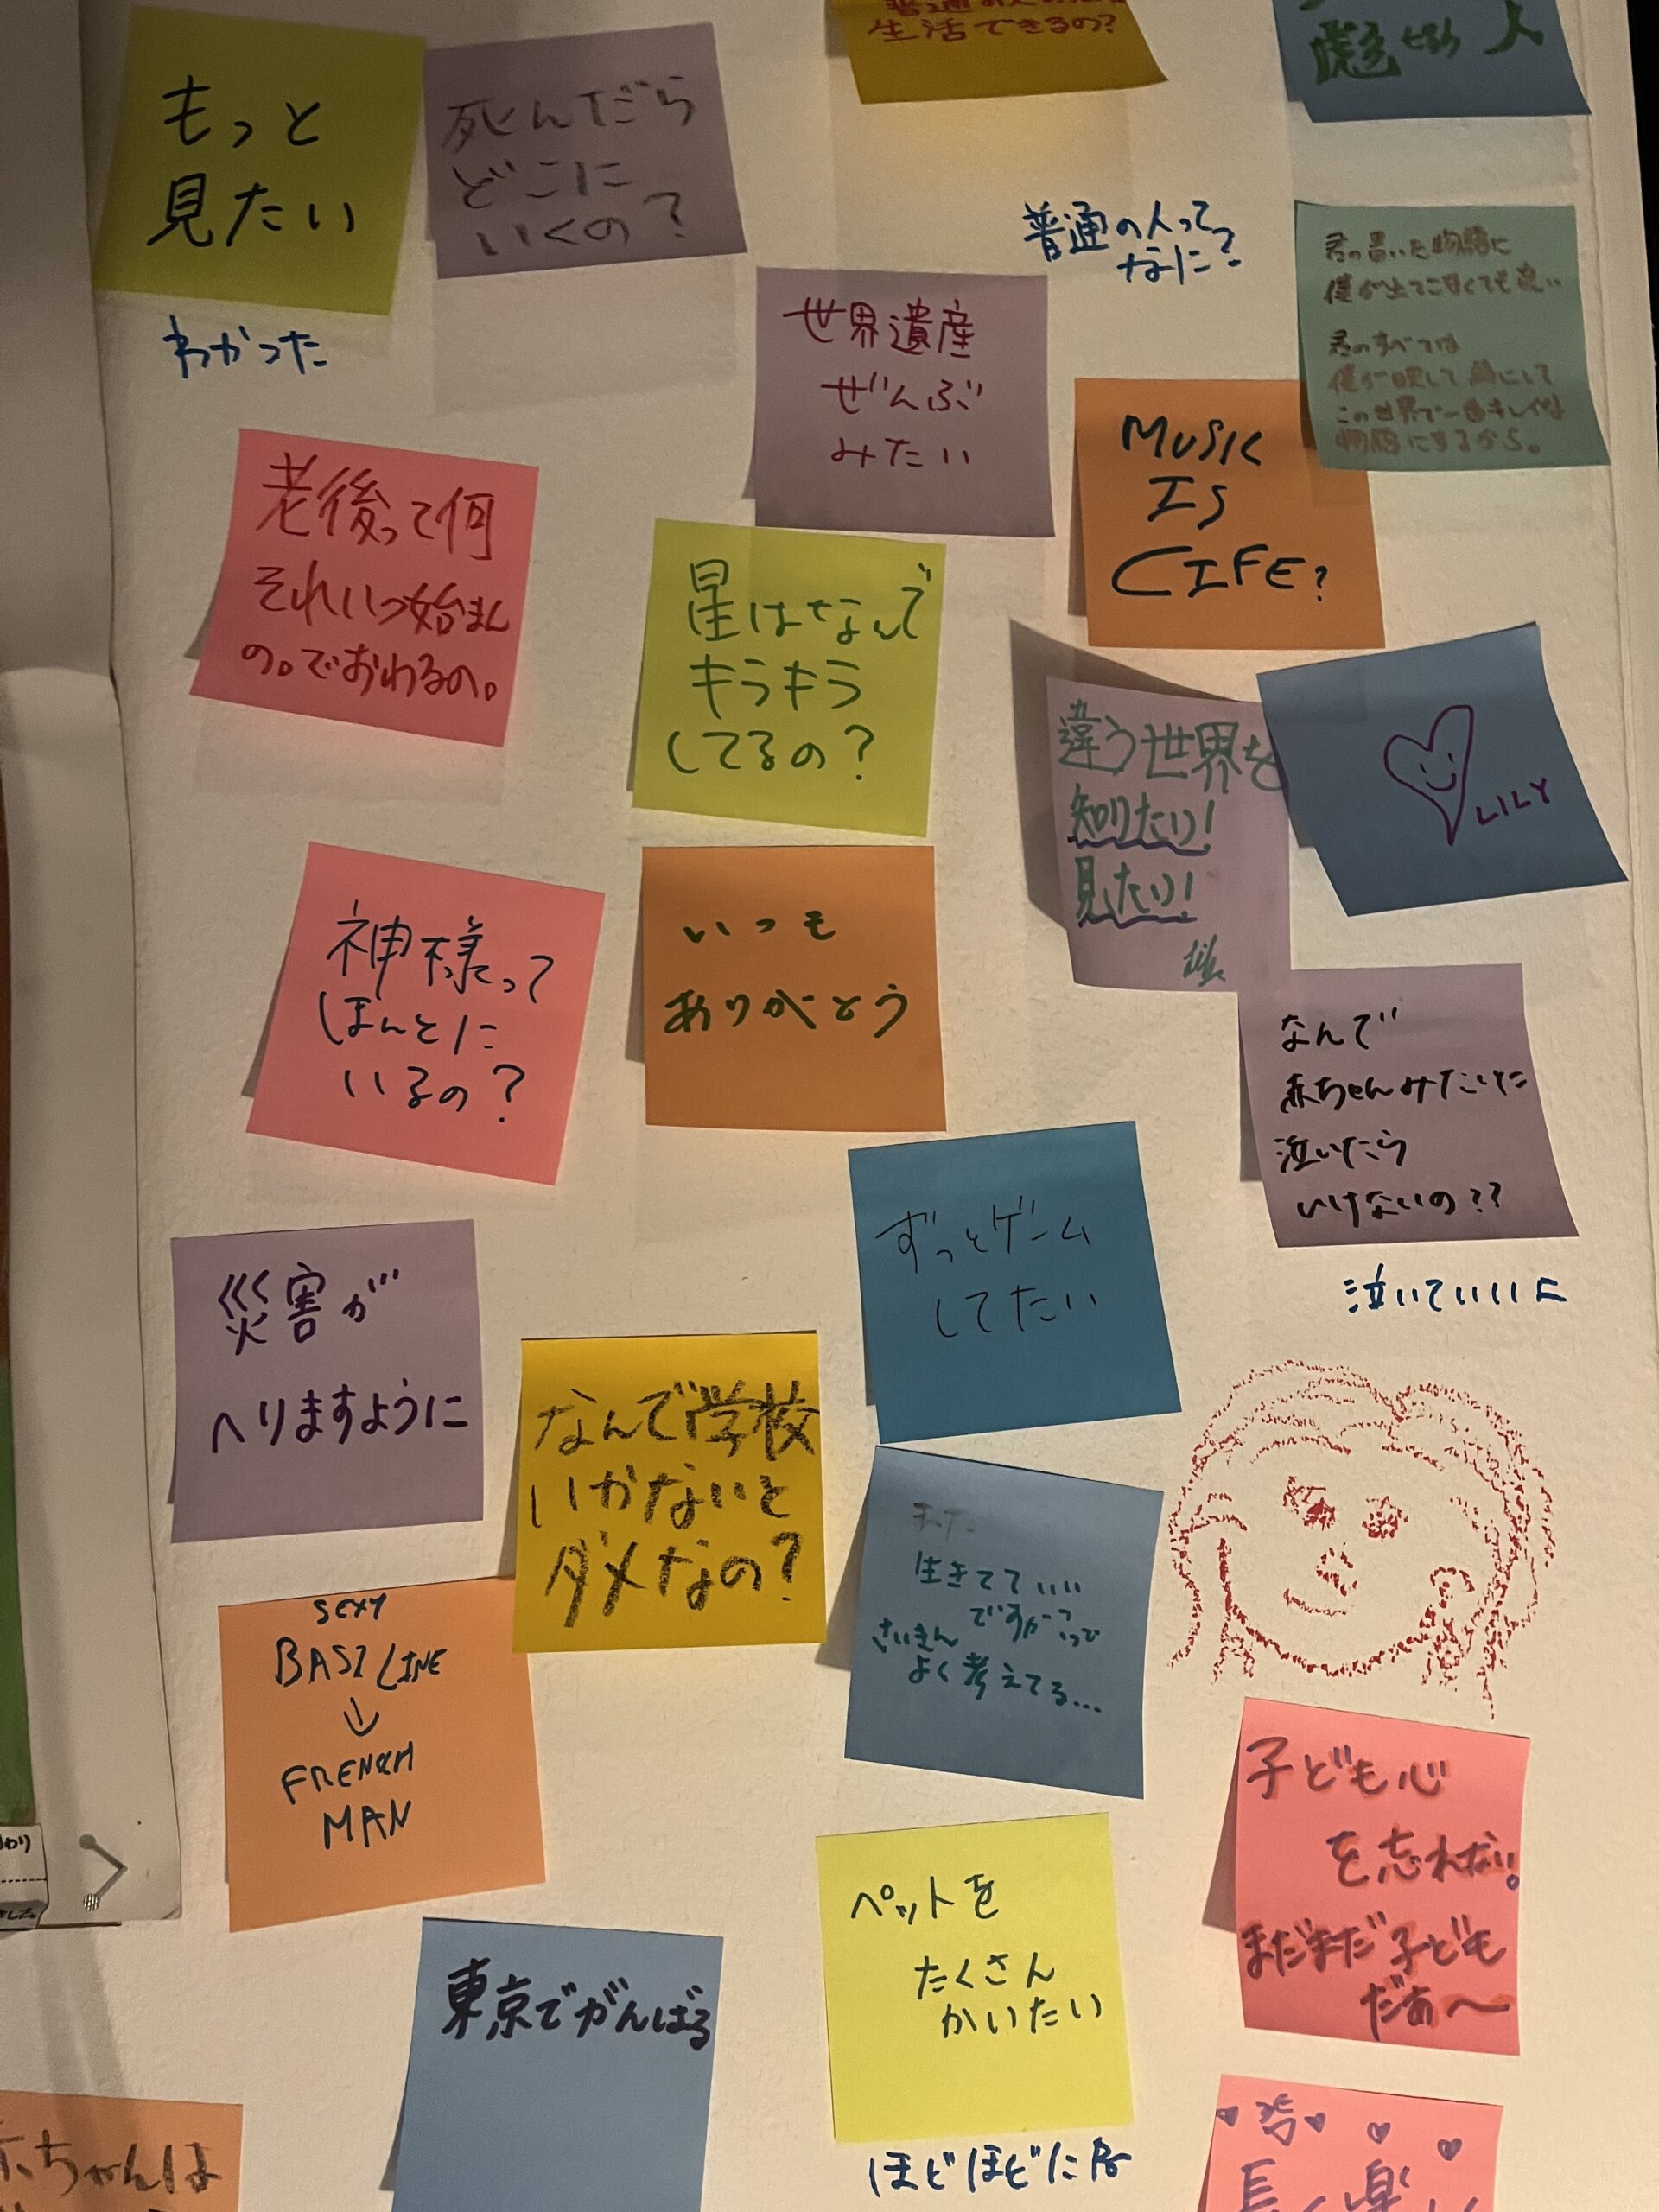 生活できるの?
もっと
見たい
わかった
死んだら
どこに
いくの?
普通の人って
なに?
君の書いた物語に
僕が出てこなくても良い
君のすべては
この世界で一番キレイな
物語にするから。
世界遺産
ぜんぶ
みたい
MUSIC
IS
LIFE?
老後って何
それいつ始まん
の。でおわるの。
星はなんで
キラキラ
してるの?
違う世界を
知りたい!
見たい!
LILY
神様って
ほんとに
いるの?
いつも
ありがとう
なんで
赤ちゃんみたいに
泣いたら
いけないの??
泣いていいよ
ずっとゲーム
してたい
災害が
へりますように
なんで学校
いかないと
ダメなの?
生きてていい
ですかって
さいきん
よく考えてる...
SEXY
BASS LINE
↓
FRENCH
MAN
子ども心
を忘れない。
まだまだ子ども
だぁ〜
ペットを
たくさん
かいたい
ほどほどにね
東京でがんばる
ちゃんは